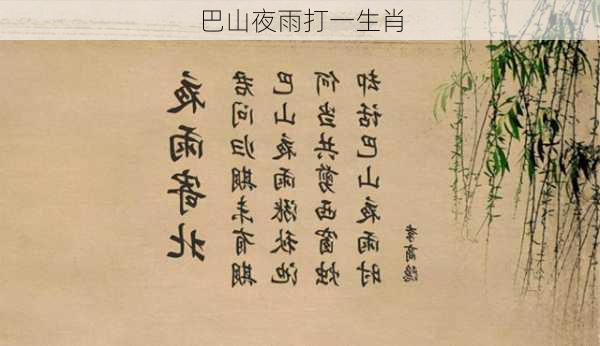 巴山夜雨打一生肖
夜雨寄北
君问归期未有期
巴山夜雨涨秋池
何当共剪西窗烛
却话巴山夜雨时
李商隐